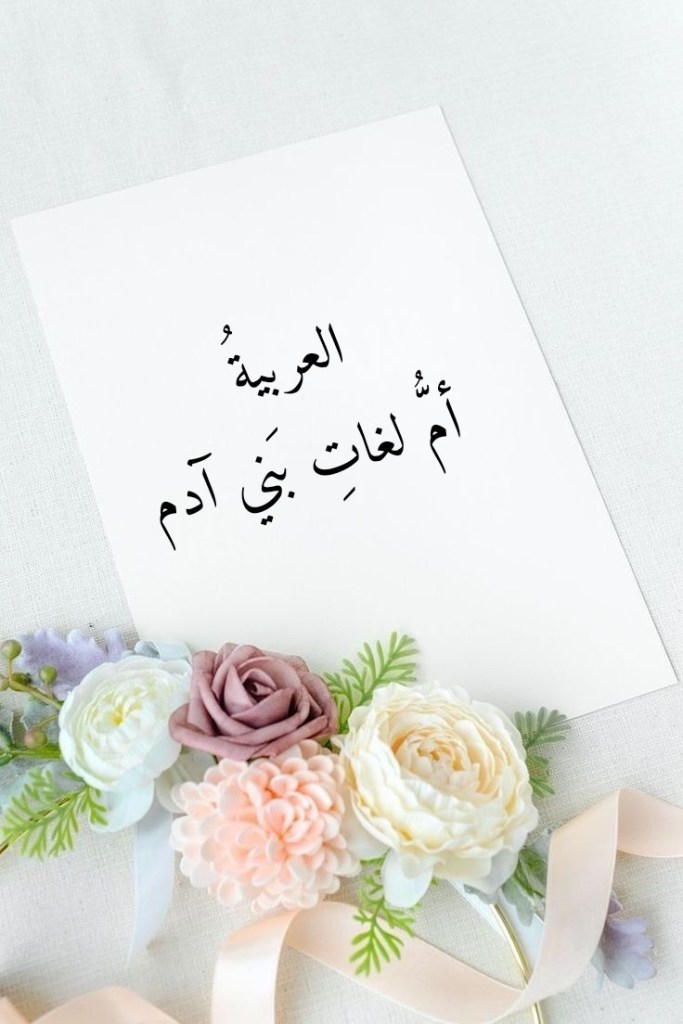 العربيةُ
أمُّ لغاتِ بَني آدم